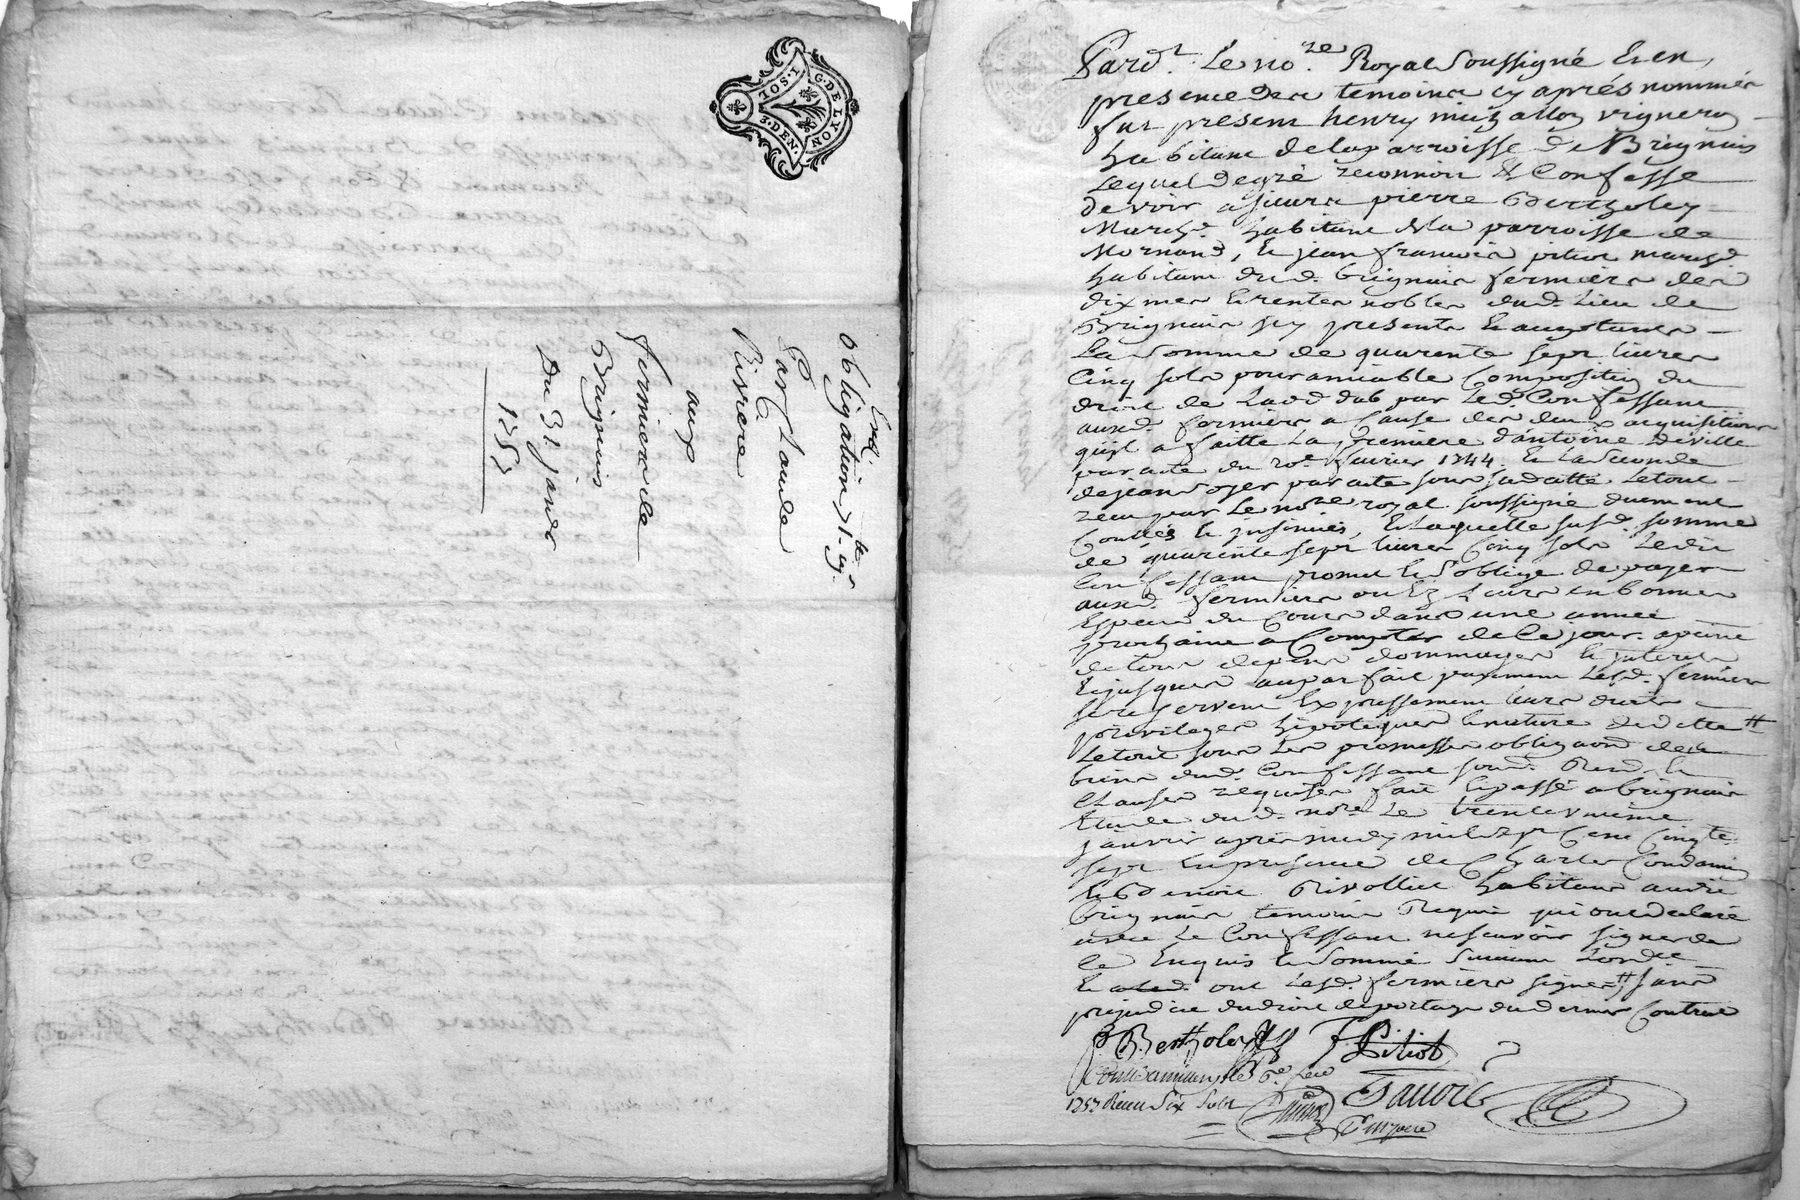 G. DE LYON
1. SOL
3. DEN.
Obligation
Par Claude
Riviere
aux
fermiers de
Brignais
Du 31 janvr
1757
Pard.t Le no.re Royal Soussigné Et en
presence des temoins cy après nommés
fut present henry michallon vigneron
habitant de la parroisse de Brignais
Lequel de gré reconnoit & Confesse
devoir a sieurs pierre Bertholey
March.d habitant de la parroisse de
Mornand, & jean francois pitiot march.d
habitant dud. brignais fermiers des
dixmes & rentes nobles dud. Lieu de
Brignais icy presents & acceptants
La Somme de quarente sept livres
Cinq sols pour amiable Composition du
droit de Laod dub par Led. Confessant
auxd. fermiers a Cause des deux acquisitions
qu'il a faitte La premiere d'antoine Deville
par acte du 20.e fevrier 1744. & La Seconde
de jean oger par acte sous sa datte Le tout
receu par Le no.re royal soussigné duement
Conllés & insinués, & Laquelle susd. somme
de quarente sept livres Cinq sols Ledit
Confessant promet & s'oblige de payer
auxd. fermiers ou És Leurs en bonnes
Especes du Cours dans une année
prochaine a Compter de Ce jour a peine
de tous depens dommages & interets
& jusques au parfait payement Lesd. fermiers
se reservent Expressement leurs droits
privileges hipoteques & nature de dette #
Le tout sous Les promesses obligaons des
biens dud. Confessant soumd. Rend. &
Clauses requises fait & passé a brignais
Etude dud. no.re Le trente unieme
janvier après midy mil sept Cent Cinqte
sept En presence de Charles Condamin
& Benoit Rivollier habitans audit
brignais temoins Requis qui ont declaré
avec Le Confessant ne scavoir signer de
Ce Enquis & Sommé Suivant Lordce
& ont Lesd. fermiers signé, # sans
prejudice du droit de portage du dernier Contract
P. Bertholey F. Pitiot
1757 Receu Six Sols
Savoie